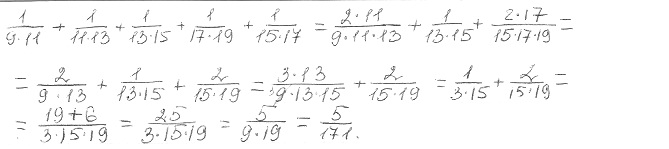 1/(9·11) + 1/(11·13) + 1/(13·15) + 1/(17·19) + 1/(15·17) = (2·11)/(9·11·13) + 1/(13·15) + (2·17)/(15·17·19) =
= 2/(9·13) + 1/(13·15) + 2/(15·19) = (3·13)/(9·13·15) + 2/(15·19) = 1/(3·15) + 2/(15·19) =
= (19+6)/(3·15·19) = 25/(3·15·19) = 5/(9·19) = 5/171.